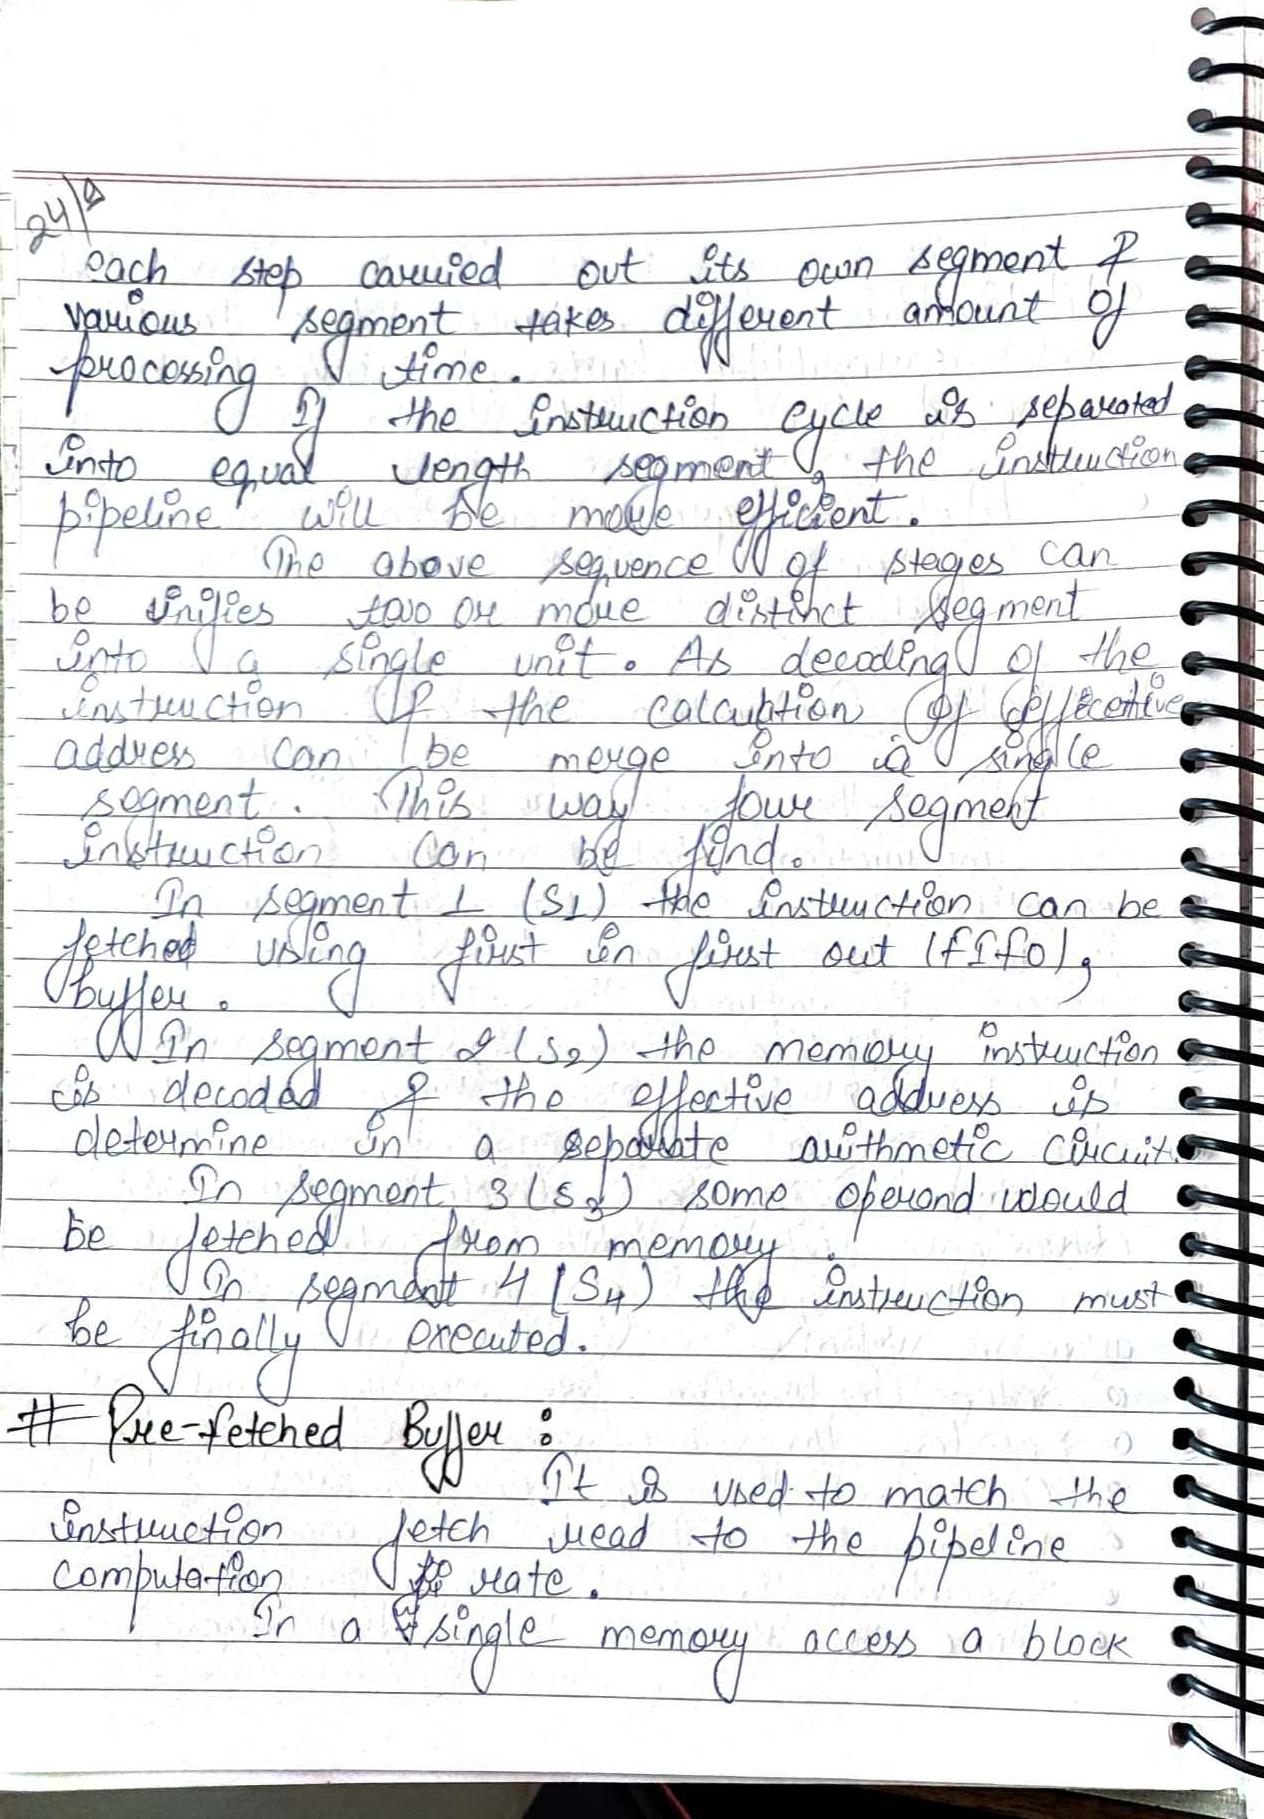 24/
each step carried out its own segment &
various segment takes different amount of
processing time.
If the instruction cycle is separated
into equal length segment, the instruction
pipeline will be more efficient.
The above sequence of stages can
be unifies two or more distinct segment
into a single unit. As decoding of the
instruction & the calculation of effecetive
address can be merge into a single
segment. This way four segment
instruction can be find.
In segment 1 (S1) the instruction can be
fetched using first in first out (fIfO),
buffer.
In segment 2 (S2) the memory instruction
is decoded & the effective address is
determine in a separate arithmetic circuit.
In segment 3 (S3) some operand would
be fetched from memory.
In segment 4 (S4) the instruction must
be finally executed.
# Pre-fetched Buffer :
It is used to match the
instruction fetch read to the pipeline
computation rate.
In a single memory access a block